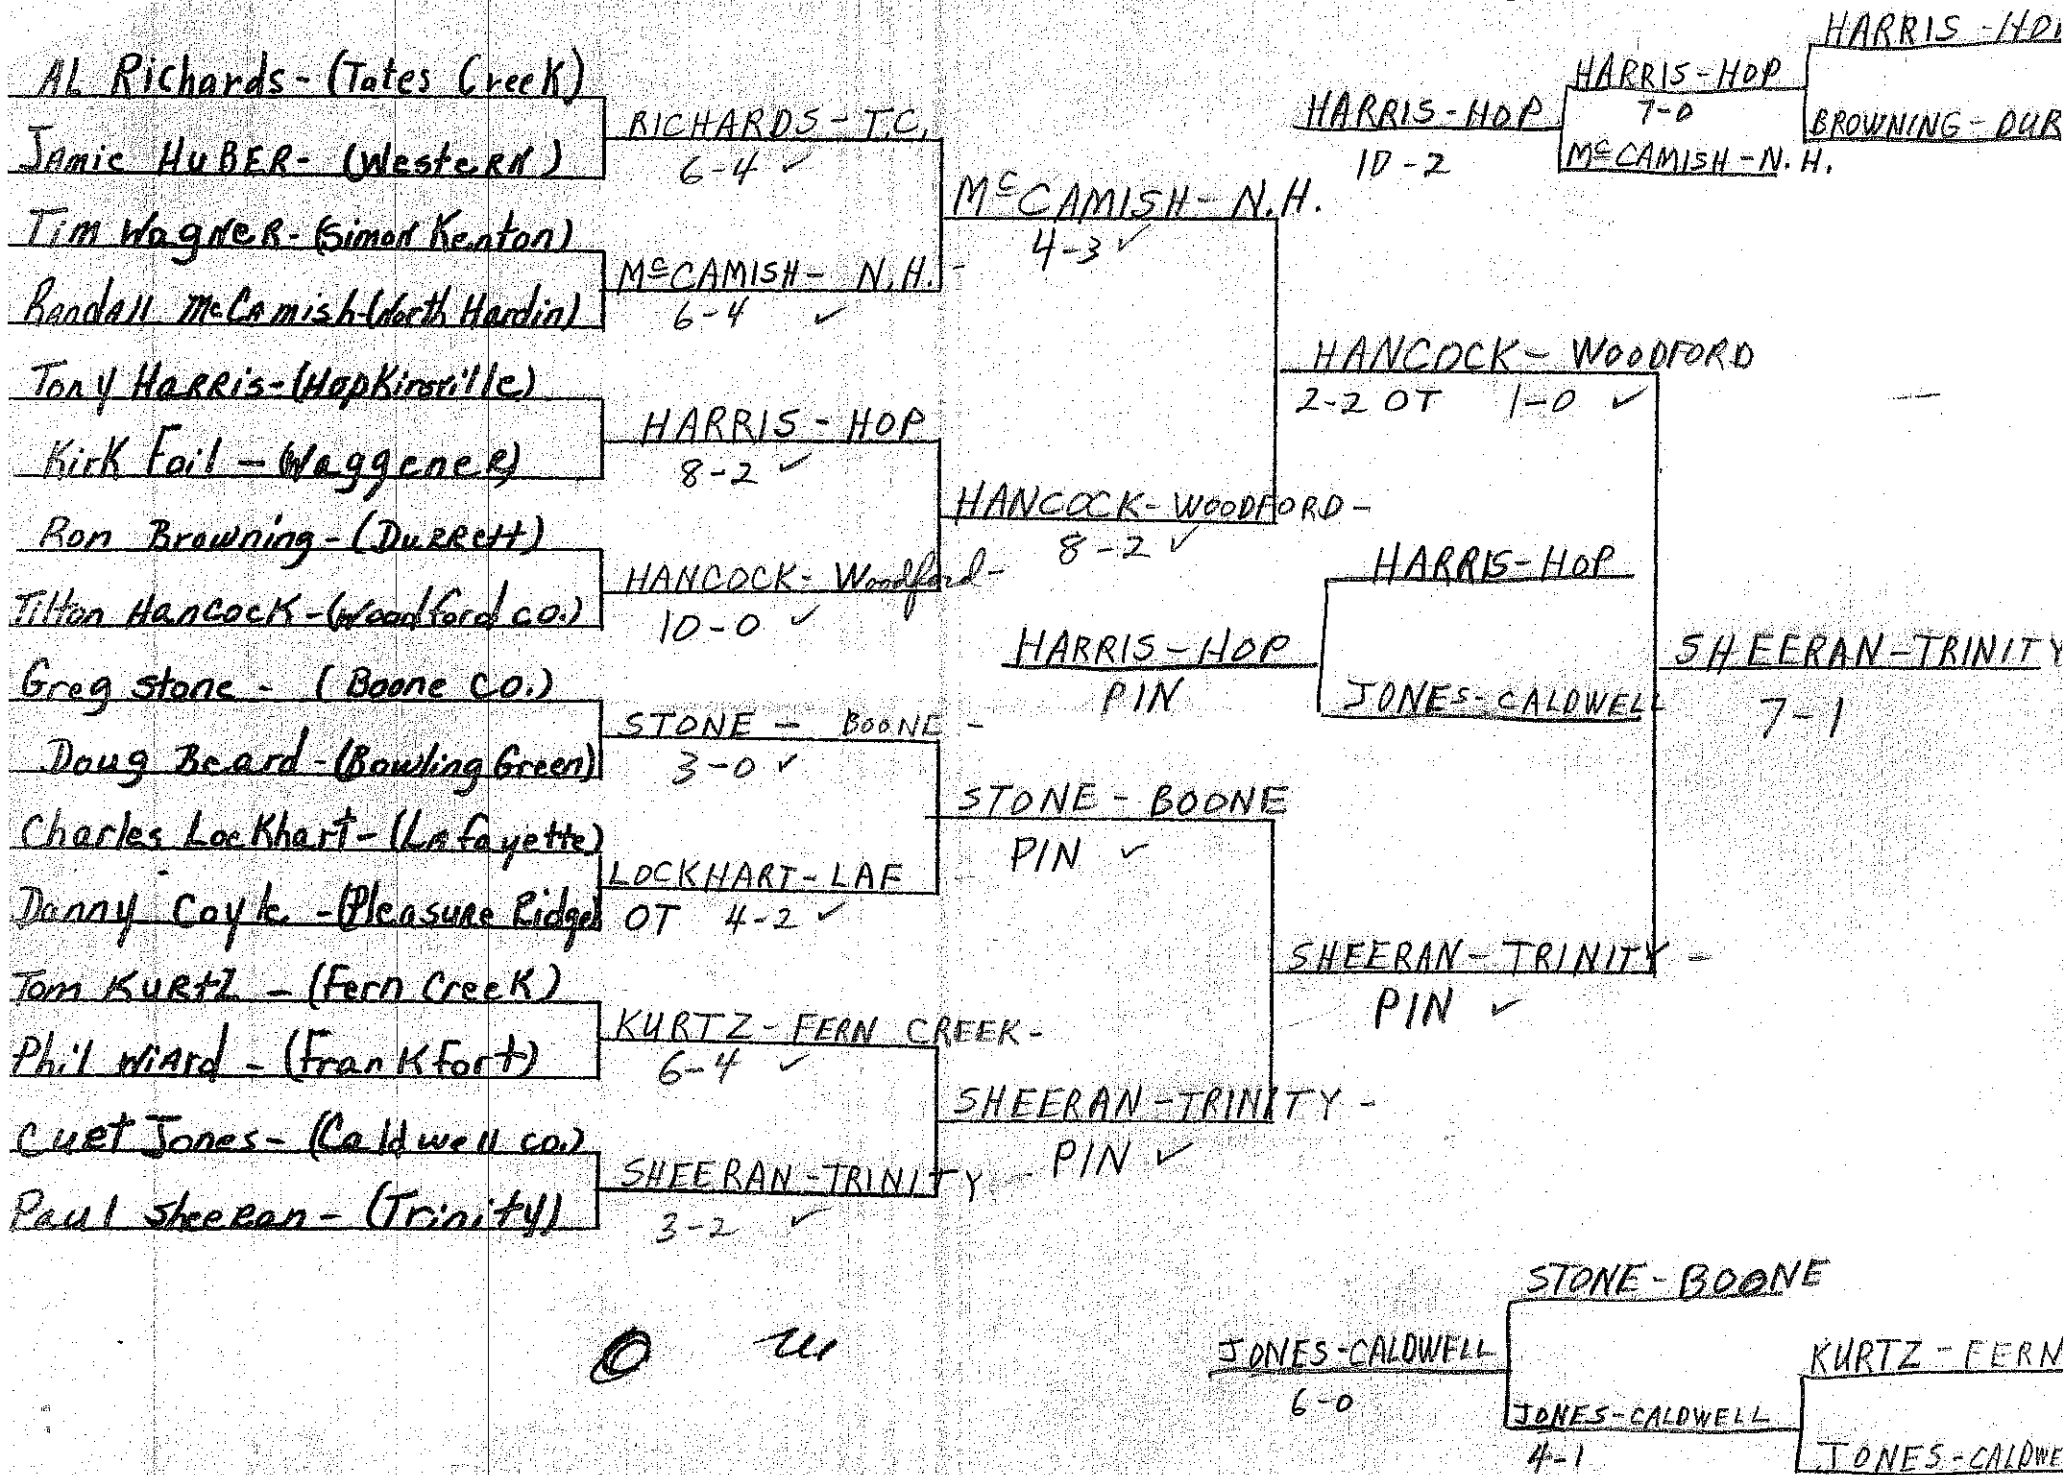 AL Richards - (Tates Creek)
Jamie HuBER - (Western)
Tim Wagner - (Simon Kenton)
Randall McCamish - (North Hardin)
Tony Harris - (Hopkinsville)
Kirk Foil - (Waggener)
Ron Browning - (Durrett)
Tilton Hancock - (Woodford co.)
Greg Stone - (Boone co.)
Doug Beard - (Bowling Green)
Charles Lockhart - (Lafayette)
Danny Coyle - (Pleasure Ridge)
Tom Kurtz - (Fern Creek)
Phil Wiard - (Frankfort)
Curt Jones - (Caldwell co.)
Paul Sheeran - (Trinity)
RICHARDS - T.C.
6-4 ✓
McCAMISH - N.H. -
6-4 ✓
HARRIS - HOP
8-2 ✓
HANCOCK - Woodford -
10-0 ✓
STONE - BOONE -
3-0 ✓
LOCKHART - LAF -
OT 4-2 ✓
KURTZ - FERN CREEK -
6-4 ✓
SHEERAN - TRINITY -
3-2 ✓
McCAMISH - N.H.
4-3 ✓
HANCOCK - WOODFORD -
8-2 ✓
STONE - BOONE
PIN ✓
SHEERAN - TRINITY -
PIN ✓
HANCOCK - WOODFORD
2-2 OT 1-0 ✓
SHEERAN - TRINITY -
PIN ✓
SHEERAN - TRINITY
7-1
HARRIS - HOP
BROWNING - DUR
HARRIS - HOP
7-0
McCAMISH - N.H.
HARRIS - HOP
10-2
HARRIS - HOP
JONES - CALDWELL
HARRIS - HOP
PIN
STONE - BOONE
JONES - CALDWELL
4-1
JONES - CALDWELL
6-0
KURTZ - FERN
JONES - CALDWE